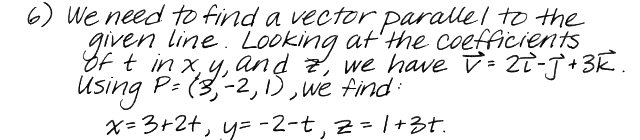 6) We need to find a vector parallel to the
given line. Looking at the coefficients
of t in x, y, and z, we have v⃗ = 2i⃗ - j⃗ + 3k⃗.
Using P = (3, -2, 1), we find:
x = 3+2t, y = -2-t, z = 1+3t.